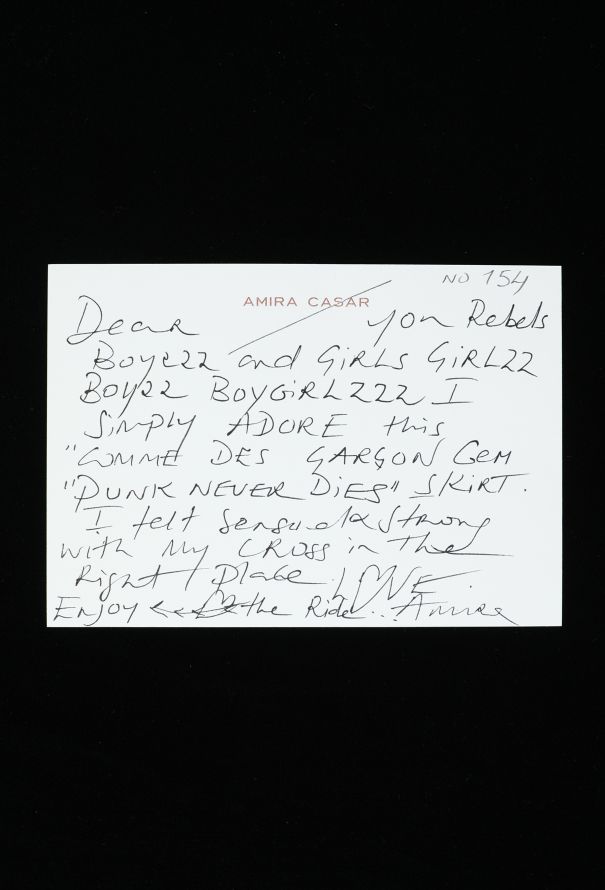 NO 154
AMIRA CASAR
Dear you Rebels
Boyzzz and GiRLS GiRLZZ
Boyzz BOYGiRLZZZ I
Simply ADORE this
"COMME DES GARÇON GEM
"PUNK NEVER DiES" SKiRT.
I felt sensual & strong
with My CROSS in the
Right place. LOVE.
Enjoy the Ride... Amira